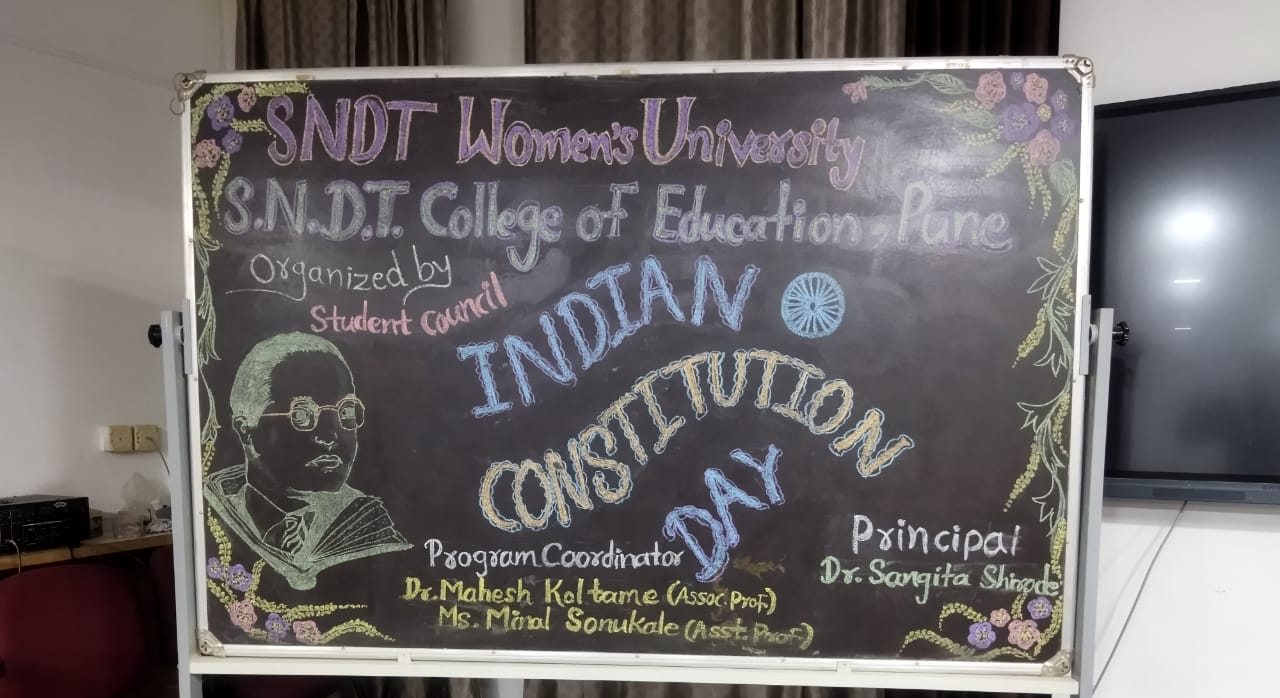 SNDT Women's University
S.N.D.T. College of Education, Pune
Organized by
Student Council
INDIAN
CONSTITUTION
DAY
Program Coordinator
Dr. Mahesh Koltame (Assoc. Prof.)
Ms. Minal Sonukale (Asst. Prof.)
Principal
Dr. Sangita Shirode